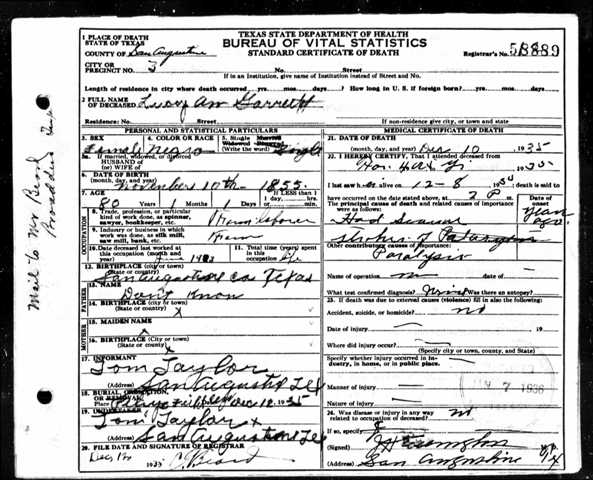 TEXAS STATE DEPARTMENT OF HEALTH
BUREAU OF VITAL STATISTICS
STANDARD CERTIFICATE OF DEATH
1 PLACE OF DEATH
STATE OF TEXAS
COUNTY OF San Augustine
CITY OR
PRECINCT NO. 3
No. Street
Registrar's No.
If in an Institution, give name of Institution instead of Street and No.
Length of residence in city where death occurred yrs. mos. days. How long in U. S. if foreign born? yrs. mos. days.
2 FULL NAME
OF DECEASED Lucy Ann Garrett
Residence: No. Street If non-residence give city, or town and state
PERSONAL AND STATISTICAL PARTICULARS
3. SEX
4. COLOR OR RACE
5. Single Married
Widowed Divorced
(Write the word) Single
Female Negro
5a. If married, widowed, or divorced
HUSBAND of
or WIFE of
6. DATE OF BIRTH
(month, day, and year)
November 10th - 1855
7. AGE Years Months Days If LESS than 1
80 1 1 Day
8. Trade, profession, or particular
kind of work done, as spinner,
sawyer, bookkeeper, etc. Farm Laborer
9. Industry or business in which
work was done, as silk mill,
saw mill, bank, etc. Farm
10. Date deceased last worked at
this occupation (month and
year)
11. Total time (years)
spent in this
occupation life
12. BIRTHPLACE (city or town)
(State or country)
San Augustine Co Texas
13. NAME
Dont Know
14. BIRTHPLACE (city or town)
(State or country) x
15. MAIDEN NAME
x
16. BIRTHPLACE (city or town)
(State or country) x
17. INFORMANT
Tom Taylor
(Address) San Augustine Tex
18. BURIAL, CREMATION,
OR REMOVAL
Place Date Dec 12 1935
19. UNDERTAKER
Tom Taylor x
(Address) San Augustine Tex
20. FILE DATE AND SIGNATURE OF REGISTRAR
1935
OCCUPATION
FATHER
MOTHER
MEDICAL CERTIFICATE OF DEATH
21. DATE OF DEATH
(month, day, and year) Dec 10 1935
22. I HEREBY CERTIFY, That I attended deceased
from
I last saw h alive on 12-8 death is said to
have occurred on the date stated above, at 2 P m.
The principal causes of death and related causes of importance
were as follows:
Date of
onset
Other contributory causes of importance:
Paralysis
Name of operation Date of
What test confirmed diagnosis? Was there an autopsy?
23. If death was due to external causes (violence) fill in also the following:
Accident, suicide, or homicide? no
Date of injury 19
Where did injury occur?
(Specify city or town, county, and State)
Specify whether injury occurred in
industry, in home, or in public place.
Manner of injury
7 1936
Nature of injury
24. Was disease or injury in any way
related to occupation of deceased? no
If so, specify
(Signed)
(Address) San Augustine Tx
Mail to Mr